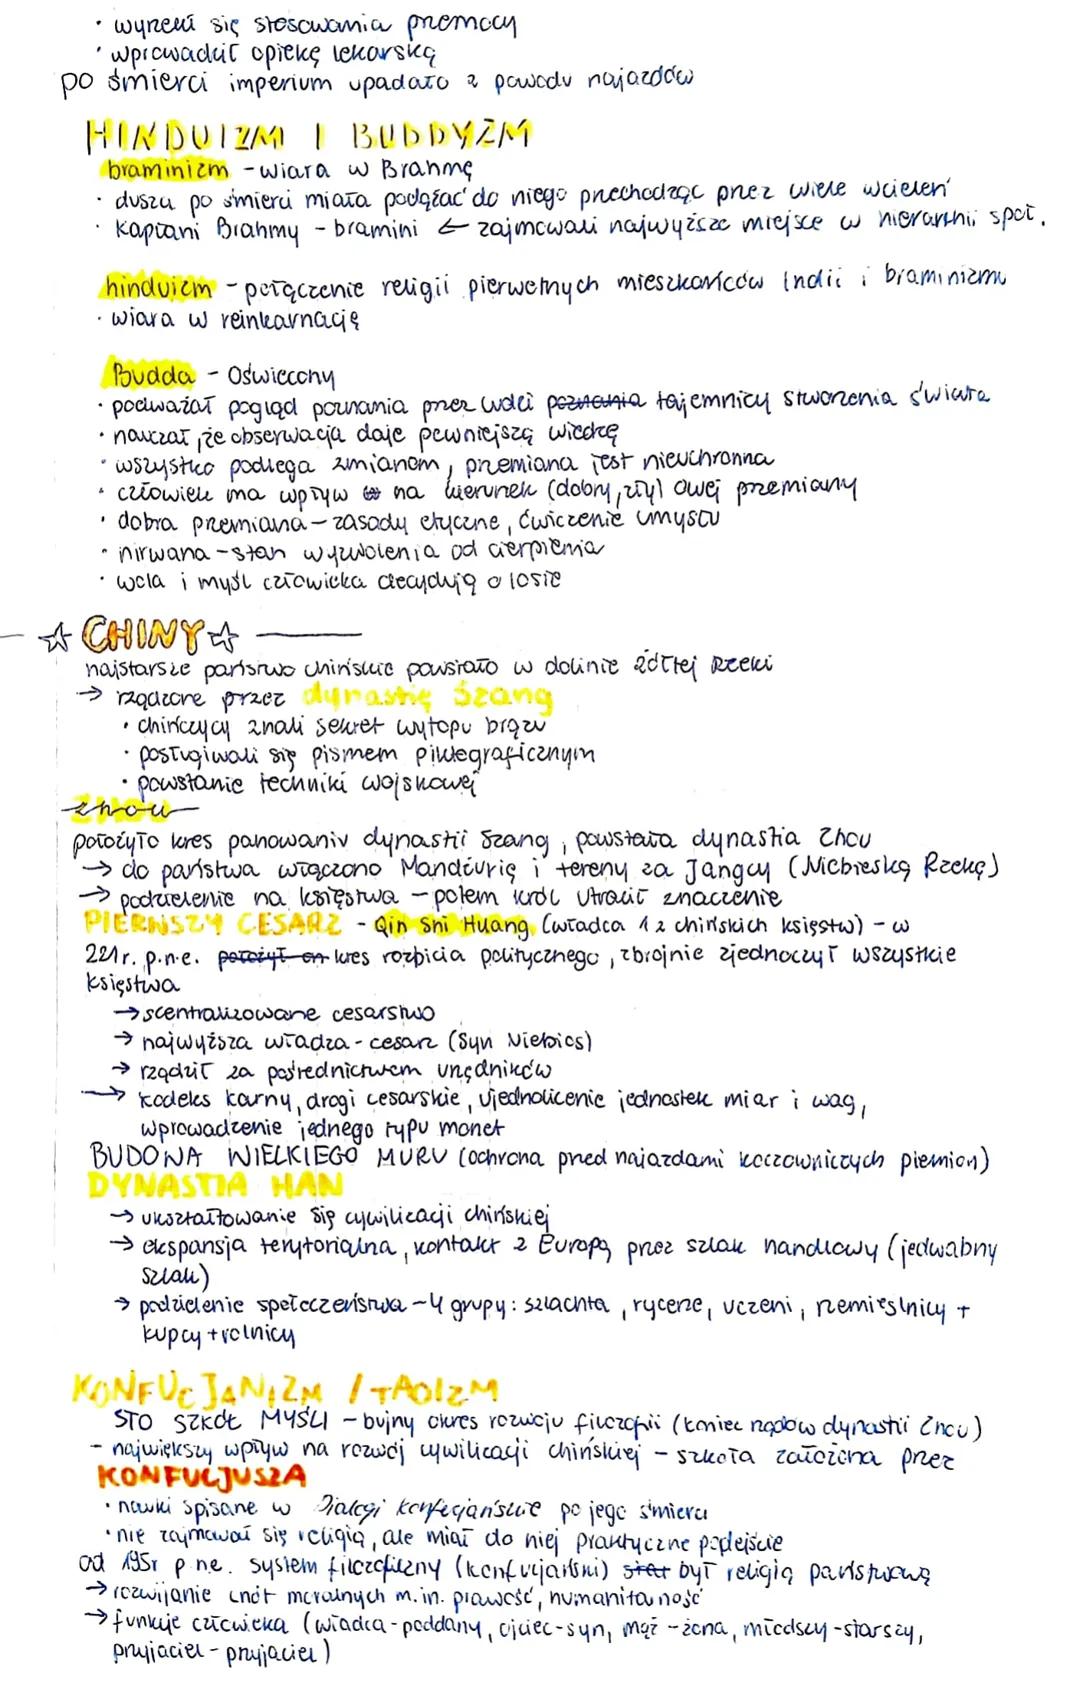 · wyrzekł się stosowania przemocy
· wprowadził opiekę lekarską
po śmierci imperium upadało z powodu najazdów
HINDUIZM I BUDDYZM
braminizm - wiara w Brahmę
· dusza po śmierci miała podążać do niego przechodząc przez wiele wcieleń
· kapłani Brahmy - bramini ← zajmowali najwyższe miejsce w hierarchii społ.
hinduizm - połączenie religii pierwotnych mieszkańców Indii i braminizmu
· wiara w reinkarnację
Budda - Oświecony
· podważał pogląd poznania przez ludzi poznania tajemnicy stworzenia świata
· nauczał, że obserwacja daje pewniejszą wiedzę
· wszystko podlega zmianom, przemiana jest nieuchronna
· człowiek ma wpływ na kierunek (dobry, zły) owej przemiany
· dobra przemiana - zasady etyczne, ćwiczenie umysłu
· nirwana - stan wyzwolenia od cierpienia
· wola i myśl człowieka decydują o losie
☆ CHINY ☆
najstarsze państwo chińskie powstało w dolinie Żółtej Rzeki
→ rządzone przez dynastię Szang
· chińczycy znali sekret wytopu brązu
· posługiwali się pismem piktograficznym
· powstanie techniki wojskowej
zhou
położyło kres panowaniu dynastii Szang, powstała dynastia Zhou
→ do państwa włączono Mandżurię i tereny za Jangcy (Niebieską Rzekę)
→ podzielenie na księstwa - potem król utracił znaczenie
PIERWSZY CESARZ - Qin Shi Huang (władca 1 z chińskich księstw) - w
221 r. p.n.e. położył on kres rozbicia politycznego, zbrojnie zjednoczył wszystkie
księstwa
→ scentralizowane cesarstwo
→ najwyższa władza - cesarz (Syn Niebios)
→ rządził za pośrednictwem urzędników
→ kodeks karny, drogi cesarskie, ujednolicenie jednostek miar i wag,
wprowadzenie jednego typu monet
BUDOWA WIELKIEGO MURU (ochrona przed najazdami koczowniczych plemion)
DYNASTIA HAN
→ ukształtowanie się cywilizacji chińskiej
→ ekspansja terytorialna, kontakt z Europą przez szlak handlowy (jedwabny
szlak)
→ podzielenie społeczeństwa - 4 grupy: szlachta, rycerze, uczeni, rzemieślnicy +
kupcy + rolnicy
KONFUCJANIZM / TAOIZM
STO SZKÓŁ MYŚLI - bujny okres rozwoju filozofii (koniec rządów dynastii Zhou)
- największy wpływ na rozwój cywilizacji chińskiej - szkoła założona przez
KONFUCJUSZA
· nauki spisane w Dialogi konfucjańskie po jego śmierci
· nie zajmował się religią, ale miał do niej praktyczne podejście
od 195r p.n.e. system filozoficzny (konfucjański) był religią państwową
→ rozwijanie cnót moralnych m.in. prawość, humanitarność
→ funkcje człowieka (władca - poddany, ojciec - syn, mąż - żona, młodszy - starszy,
przyjaciel - przyjaciel)